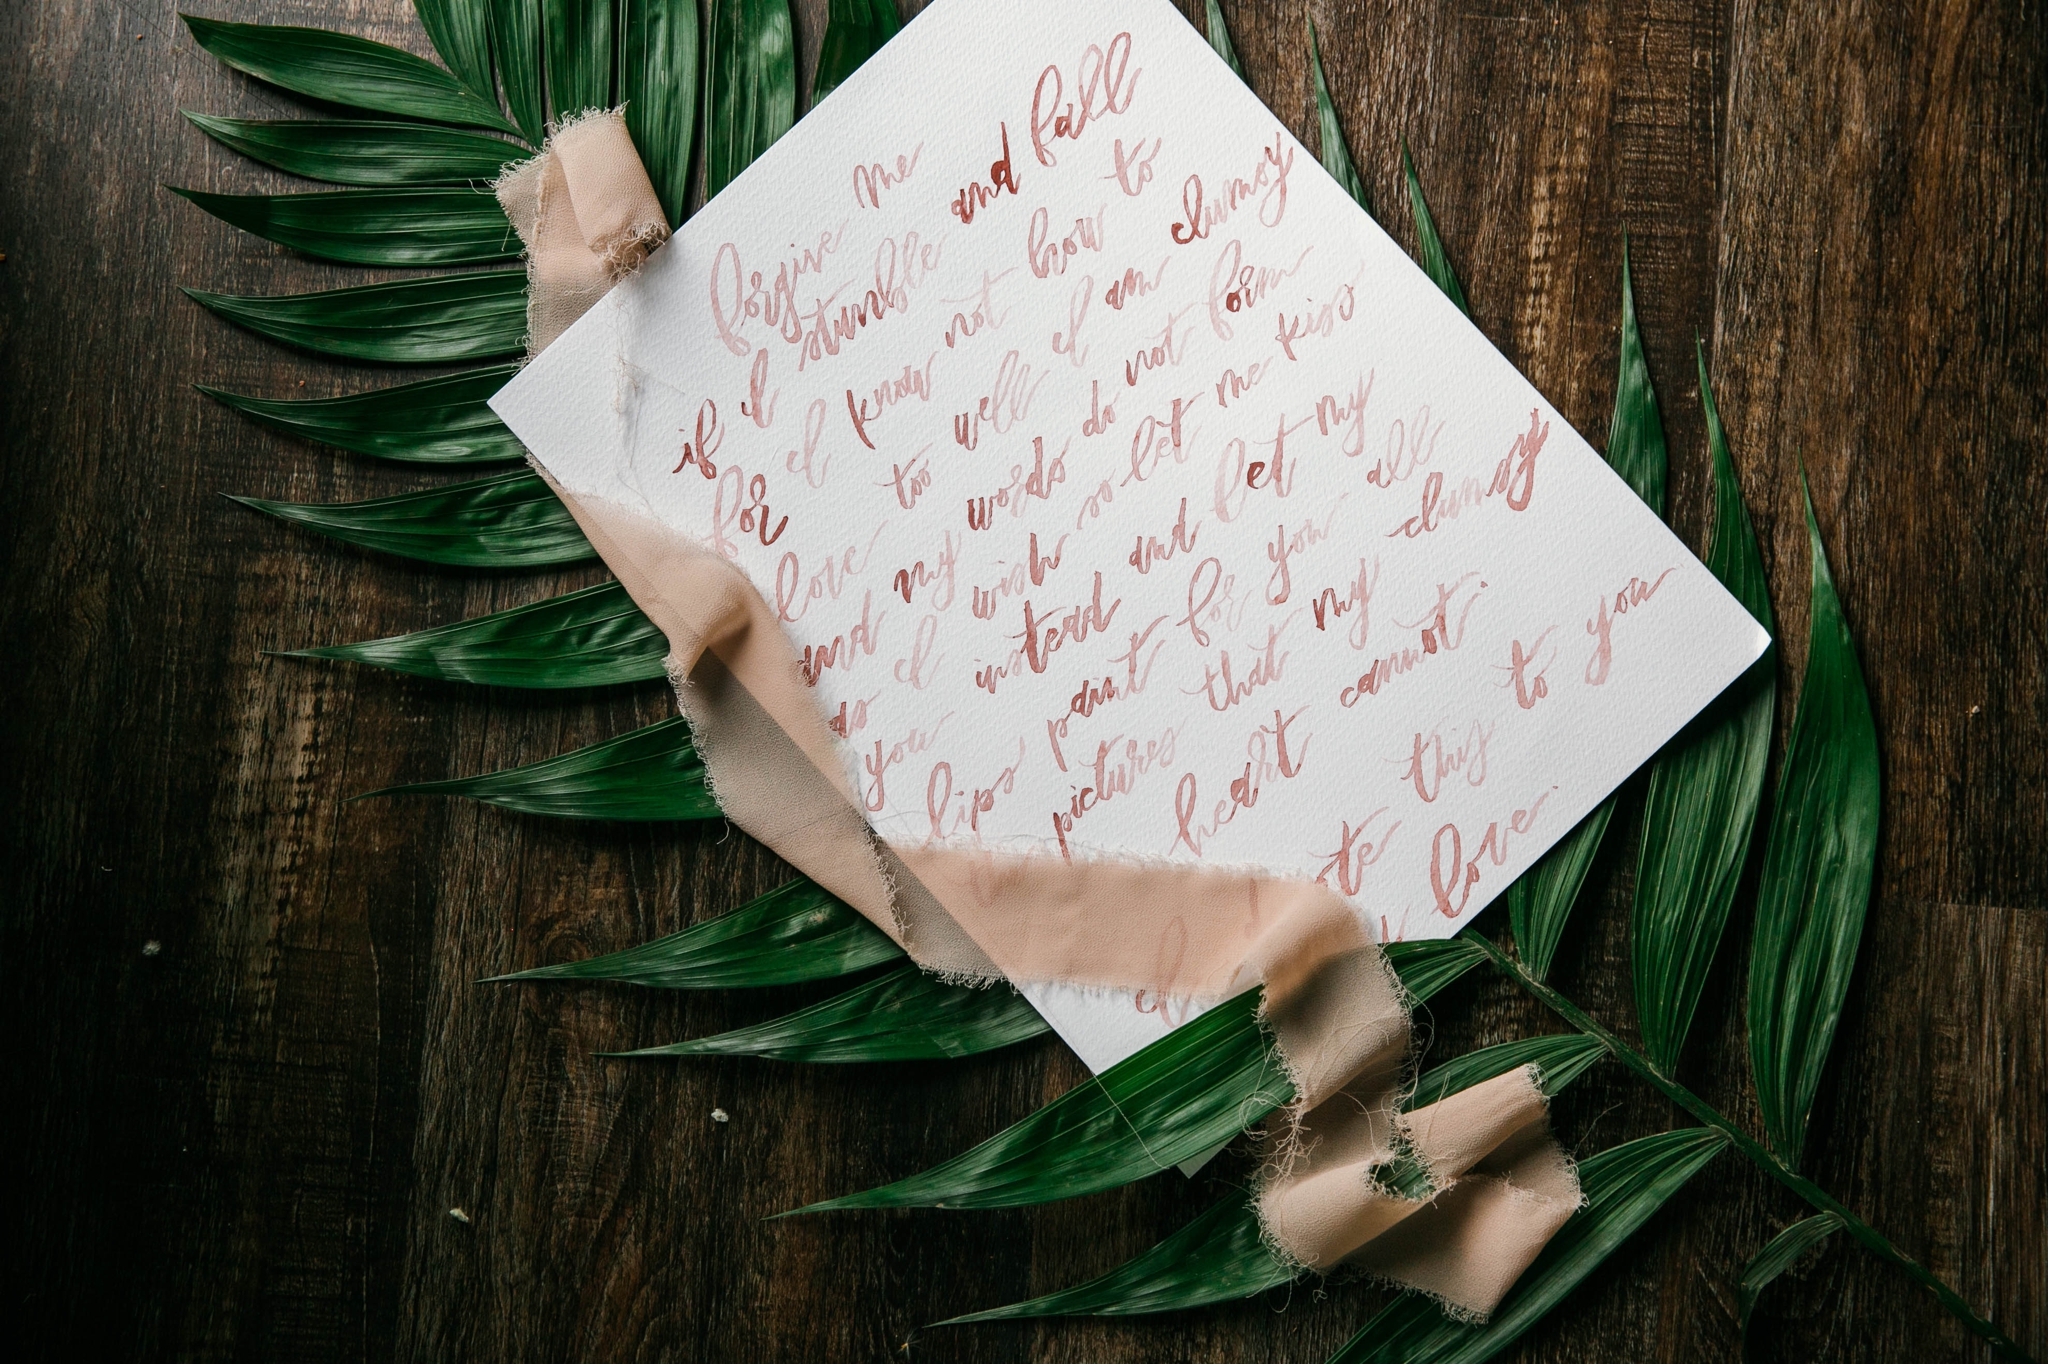 forgive me
if I stumble and fall
for I know not how to
love too well I am clumsy
and my words do not form
as I wish so let me kiss
you instead and let my
lips paint for you all
pictures that my clumsy
heart cannot.
this to you
love.